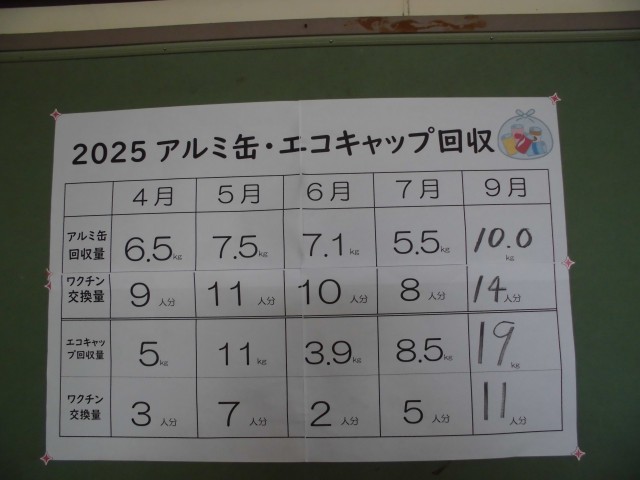 2025 アルミ缶・エコキャップ回収
4月 5月 6月 7月 9月
アルミ缶
回収量 6.5kg 7.5kg 7.1kg 5.5kg 10.0kg
ワクチン
交換量 9人分 11人分 10人分 8人分 14人分
エコキャッ
プ回収量 5kg 11kg 3.9kg 8.5kg 19kg
ワクチン
交換量 3人分 7人分 2人分 5人分 11人分